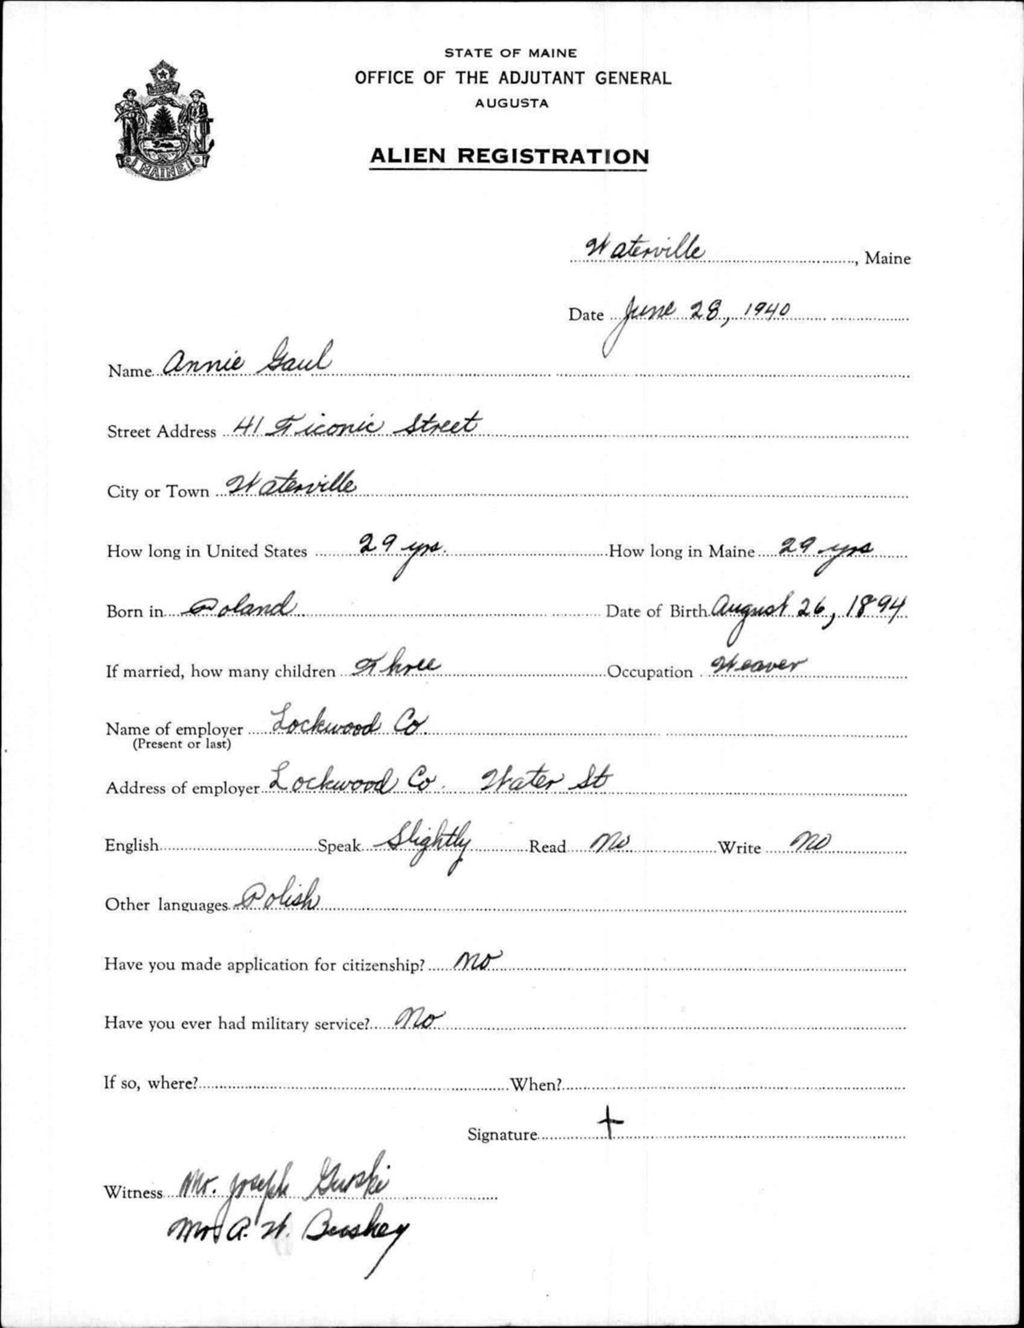 STATE OF MAINE
OFFICE OF THE ADJUTANT GENERAL
AUGUSTA
ALIEN REGISTRATION
MAINE
Waterville, Maine
Date June 28, 1940
Name Annie Gaul
Street Address 41 Ticonic Street
City or Town Waterville
How long in United States 29 yrs. How long in Maine 29 yrs
Born in Poland Date of Birth August 26, 1894
If married, how many children Three Occupation Weaver
Name of employer Lockwood Co.
(Present or last)
Address of employer Lockwood Co. Water St
English Speak Slightly Read No Write No
Other languages Polish
Have you made application for citizenship? No
Have you ever had military service? No
If so, where? When?
Signature +
Witness Mr. Joseph Gurski
A. W. Bushey